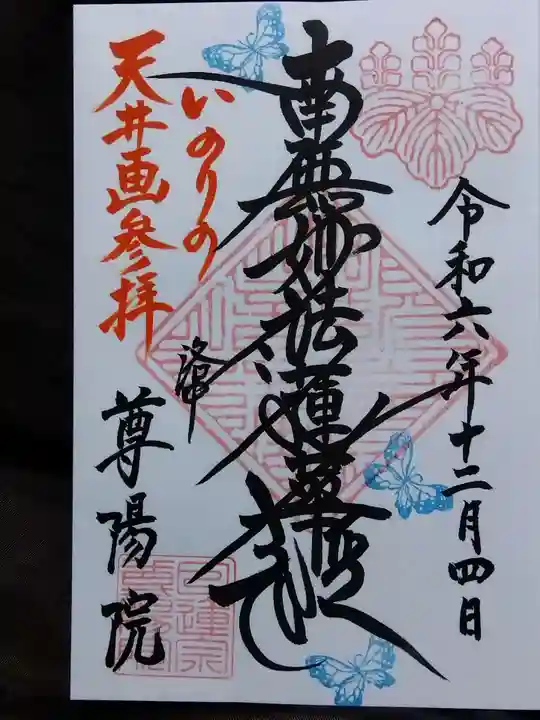 令和六年十二月四日
南無妙法蓮華経
いのりの
天井画参拝
洛中
尊陽院
日蓮宗